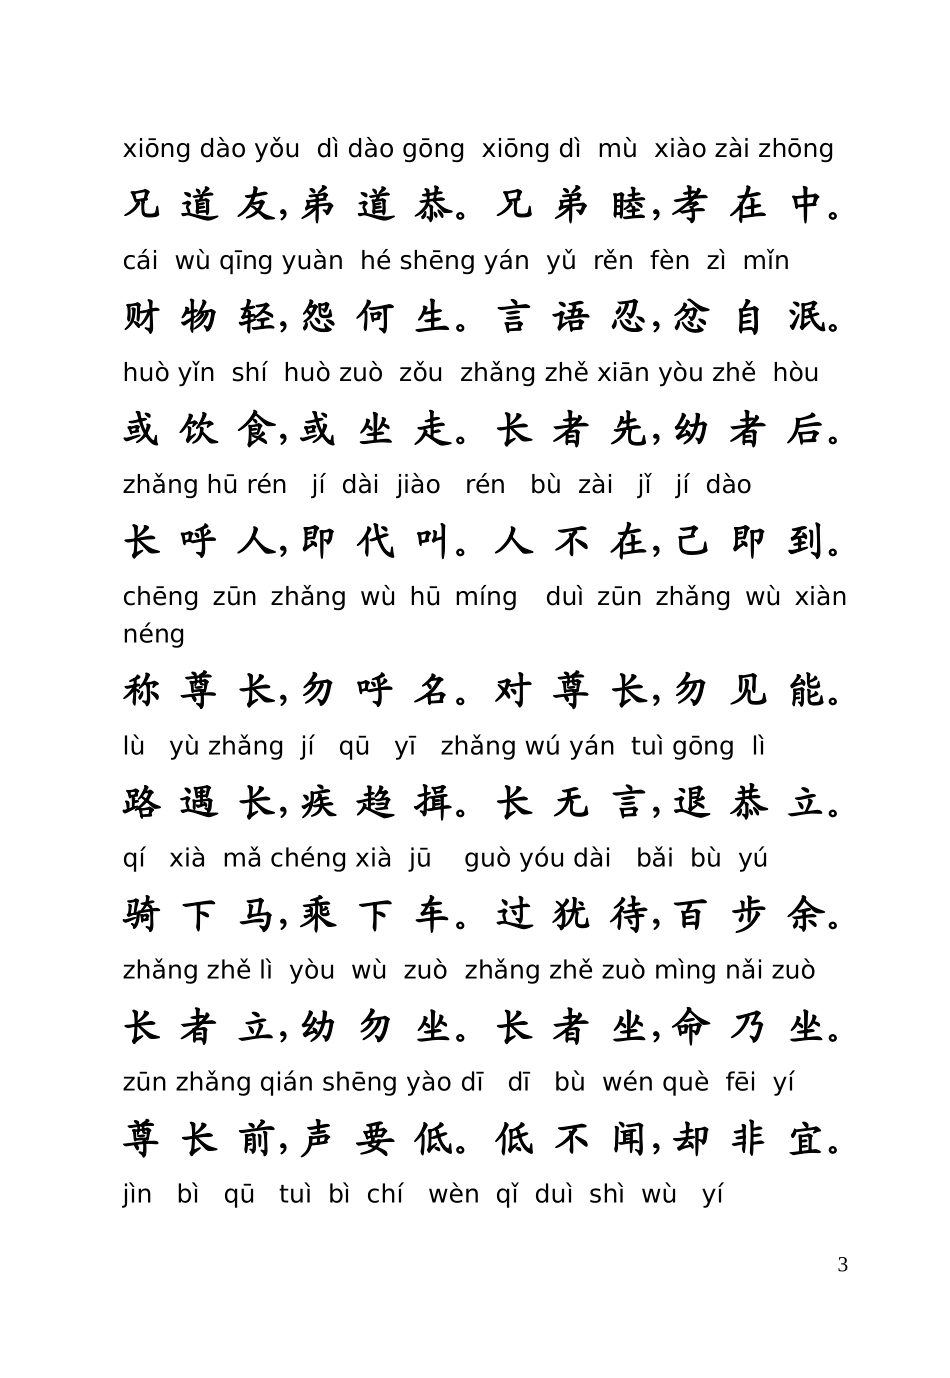 xiōng dào yǒu dì dào gōng xiōng dì mù xiào zài zhōng
兄 道 友,弟 道 恭。兄 弟 睦,孝 在 中。
cái wù qīng yuàn hé shēng yán yǔ rěn fèn zì mǐn
财 物 轻,怨 何 生。言 语 忍,忿 自 泯。
huò yǐn shí huò zuò zǒu zhǎng zhě xiān yòu zhě hòu
或 饮 食,或 坐 走。长 者 先,幼 者 后。
zhǎng hū rén jí dài jiào rén bù zài jǐ jí dào
长 呼 人,即 代 叫。人 不 在,己 即 到。
chēng zūn zhǎng wù hū míng duì zūn zhǎng wù xiàn
néng
称 尊 长,勿 呼 名。对 尊 长,勿 见 能。
lù yù zhǎng jí qū yī zhǎng wú yán tuì gōng lì
路 遇 长,疾 趋 揖。长 无 言,退 恭 立。
qí xià mǎ chéng xià jū guò yóu dài bǎi bù yú
骑 下 马,乘 下 车。过 犹 待,百 步 余。
zhǎng zhě lì yòu wù zuò zhǎng zhě zuò mìng nǎi zuò
长 者 立,幼 勿 坐。长 者 坐,命 乃 坐。
zūn zhǎng qián shēng yào dī dī bù wén què fēi yí
尊 长 前,声 要 低。低 不 闻,却 非 宜。
jìn bì qū tuì bì chí wèn qǐ duì shì wù yí
3